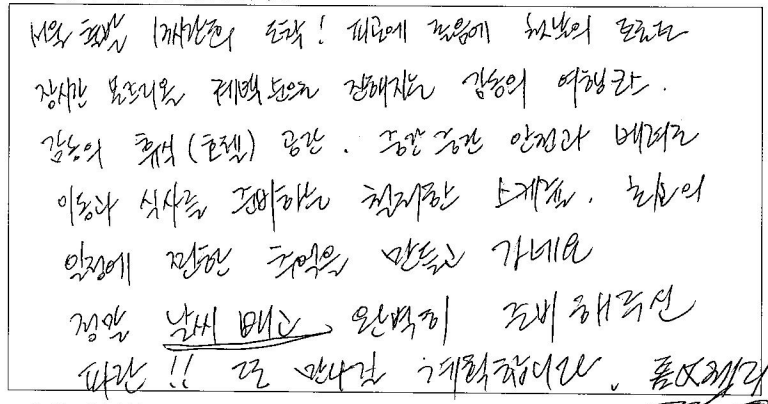 서울 출발 1시간전의 도착! 피곤에 졸음에 첫날의 모습도
장시간 모드리올 퀘백 눈으로 전해지는 감동의 여행코스.
감동의 휴식(호텔) 공간. 중간중간 안전과 배려로
이동과 식사를 준비하는 철저한 스케쥴. 최고의
일정에 진한 추억을 만들고 가네요
정말 날씨 빼고 완벽히 준비해주신
파란!! 또 만나길 계획합니다.